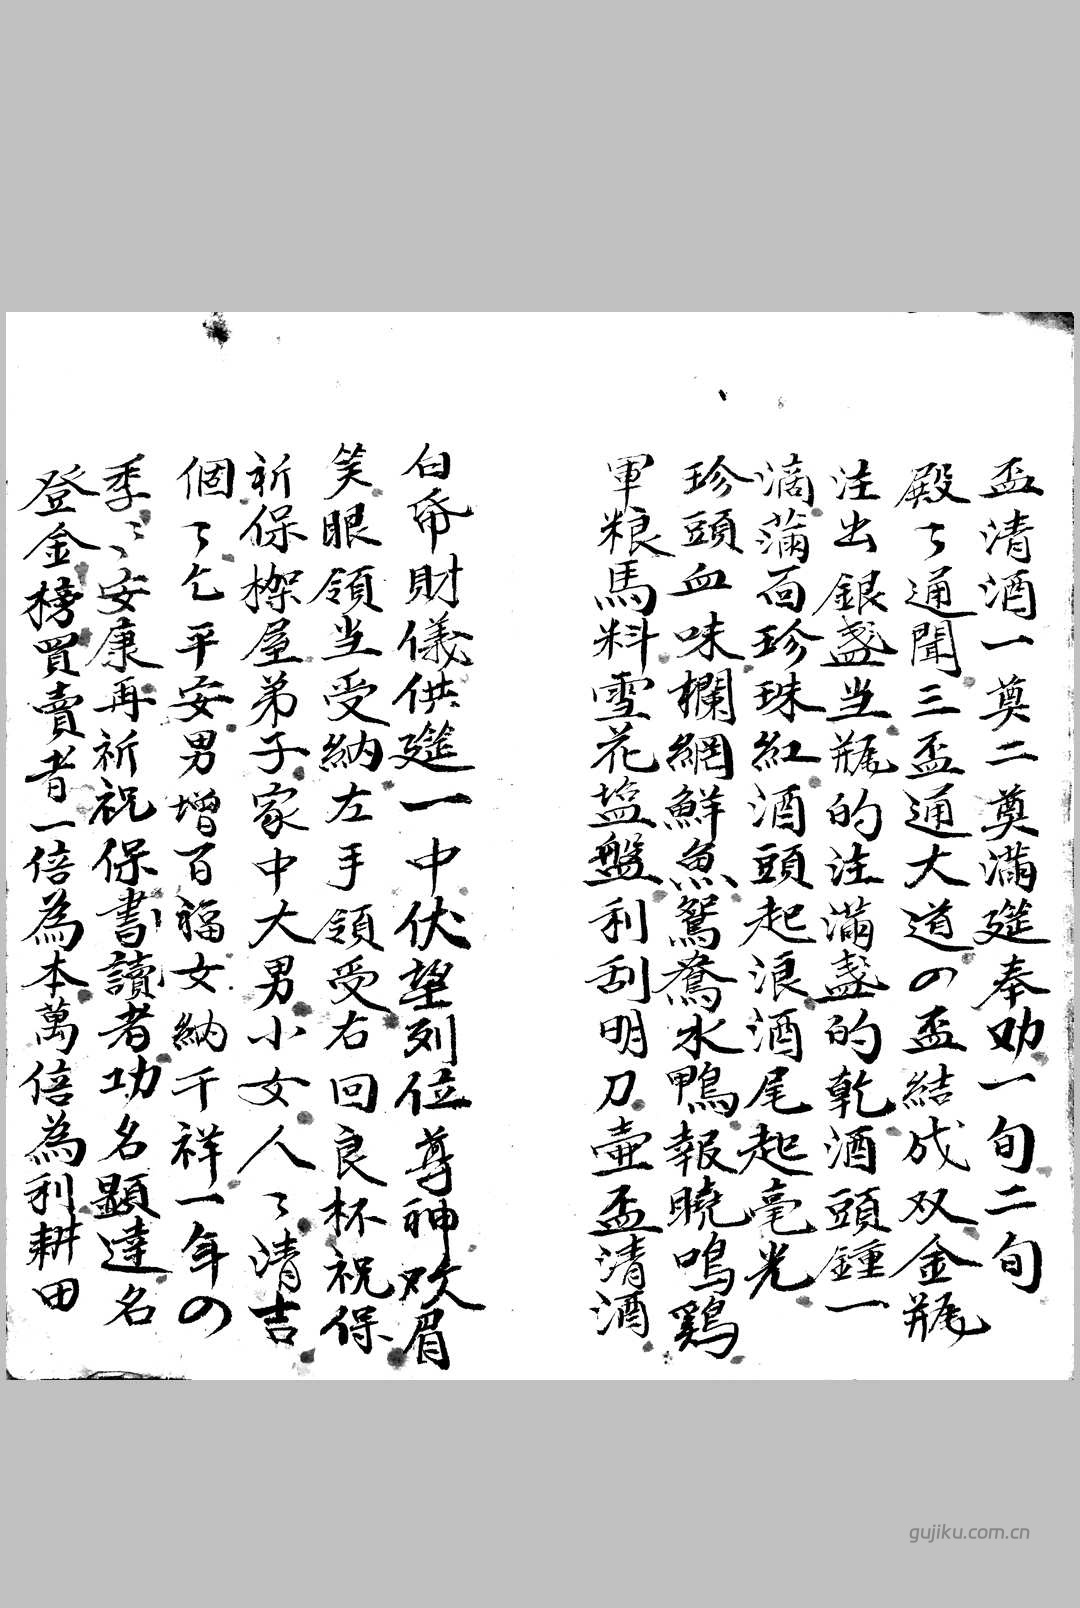 盃清酒一奠二奠满筵奉劝一旬二旬
殿々通聞三盃通大道の盃結成双金瓶
注出銀盞当瓶的注滿盞的乾酒頭鍾一
滴蒲面珍珠紅酒頭起浪酒尾起毫光
珍頭血味欄網鮮魚鴛鴦水鴨報曉鳴鷄
軍粮馬料雪花塩盤利刮明刀壷盃清酒
白帝財儀供筵一中伏望列位尊神欢眉
笑眼領当受納左手領受右回良杯祝保
祈保楪屋弟子家中大男小女人々清吉
個々乞平安男增百福女納千祥一年の
季々安康再祈祝保書讀者功名顕達名
登金榜買賣者一倍為本萬倍為利耕田
gujiku.com.cn